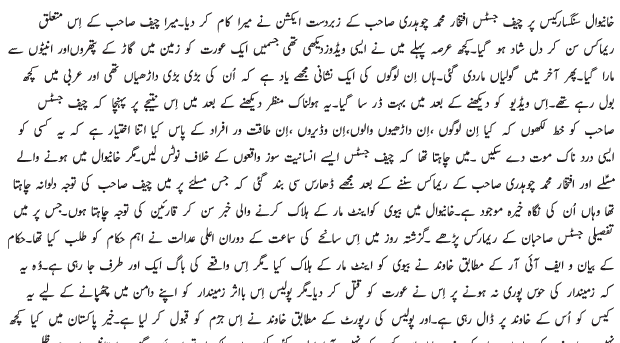 خانیوال سنگسارکیس پر چیف جسٹس افتخار محمد چوہدری صاحب کے زبردست ایکشن نے میرا کام کر دیا۔میرا چیف صاحب کے اِس متعلق
ریماکس سن کر دل شاد ہو گیا۔کچھ عرصہ پہلے میں نے ایسی ویڈیوزدیکھی تھی جسمیں ایک عورت کو زمین میں گاڑ کے پتھروں‌اور اینٹوں سے
مارا گیا۔پھر آخر میں گولیاں ماردی گئی۔ہاں اِن لوگوں کی ایک نشانی مجھے یاد ہے کہ اُن کی بڑی بڑی داڑھیاں تھی اور عربی میں کچھ
بول رہے تھے۔اِس ویڈیو کو دیکھنے کے بعد میں بہت ڈر سا گیا۔یہ ہولناک منظر دیکھنے کے بعد میں اِس نتیجے پر پہنچا کہ چیف جسٹس
صاحب کو خط لکھوں کہ کیا اِن لوگوں ،اِن داڑھیوں والوں،اِن وڈیروں ،اِن طاقت ور افراد کے پاس کیا اتنا اختیار ہے کہ یہ کسی کو
ایسی درد ناک موت دے سکیں ۔میں چاہتا تھا کہ چیف جسٹس ایسے انسانیت سوز واقعوں کے خلاف نوٹس لیں۔مگر خانیوال میں ہونے والے
مسئلے اور افتخار محمد چوہدری صاحب کے ریماکس سننے کے بعد مجھے ڈھارس سی بند گئی کہ جس مسئلے پر میں چیف صاحب کی توجہ دلوانہ چاہتا
تھا وہاں اُن کی نگاہ خیرہ موجود ہے۔خانیوال میں بیوی کواینٹ مار کے ہلاک کرنے والی خبر سن کر قارئین کی توجہ چاہتا ہوں۔جس پر میں
تفصیلی جسٹس صاحبان کے ریمارکس پڑھے ۔گزشتہ روز میں اِس سانحے کی سماعت کے دوران اعلی عدالت نے اہم حکام کو طلب کیا تھا۔حکام
کے بیان و ایف آئی آر کے مطابق خاوند نے بیوی کو اینٹ مار کے ہلاک کیا ۔مگر اِس واقعے کی باگ ایک اور طرف جا رہی ہے۔وُہ یہ
کہ زمیندار کی حوس پوری نہ ہونے پر اِس نے عورت کو قتل کر دیا۔مگر پولیس اِس بااثر زمیندار کو اپنے دامن میں چھپانے کے لیے یہ
کیس کو اُس کے خاوند پر ڈال رہی ہے۔اور پولیس کی رپورٹ کے مطابق خاوند نے اِس جرم کو قبول کر لیا ہے۔خیر پاکستان میں کیا کچھ